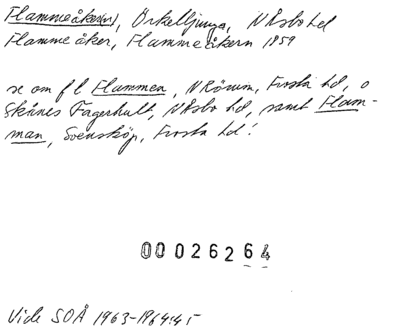 Flammeåker(n), Örkelljunga, N Åsbo hd
Flamme åker, Flammeåkern 1859
se om f l Flammen, N Rörum, Frosta hd, o
Skånes Fagerhult, N Åsbo hd, samt Flam-
man, Svensköp, Frosta hd!
00026264
Vide SOÅ 1963-1964:45